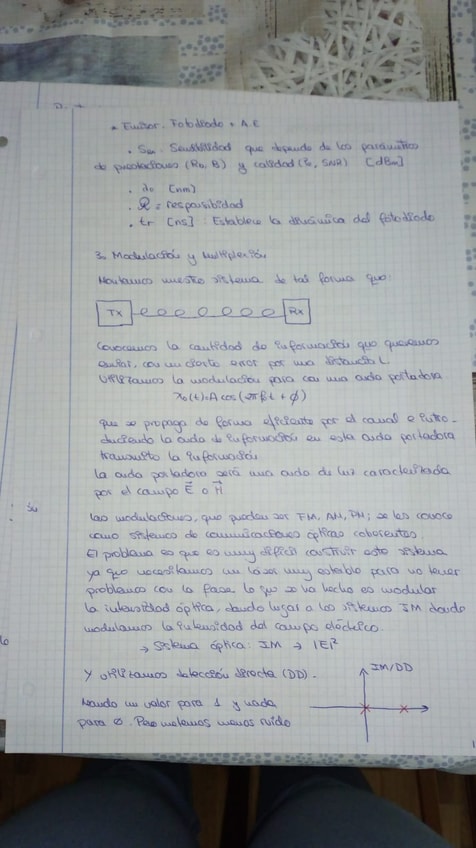 * Emisor. Fotodiodo + A.E
• Sen: Sensibilidad que depende de los parámetros
de prestaciones (Rb, B) y calidad (SNR) [dBm]
• λo [nm]
• R = responsividad
• tr [ns]: Establece la dinámica del fotodiodo
3. Modulación y Multiplexión
Montamos nuestro sistema de tal forma que:
Tx Rx
Conocemos la cantidad de información que queremos
enviar, con un cierto error por una distancia L
Utilizamos la modulación para con una onda portadora
x0(t)=A cos(2πfot + φ)
que se propaga de forma eficiente por el canal e intro-
duciendo la onda de información en esta onda portadora
transmito la información
La onda portadora será una onda de luz caracterizada
por el campo E⃗ o H⃗
Las modulaciones, que pueden ser FM, AM, PM; se les conoce
como sistemas de comunicaciones ópticas coherentes.
El problema es que es muy difícil construir este sistema
ya que necesitamos un láser muy estable para no tener
problemas con la fase. Lo que se va hecho es modular
la intensidad óptica, dando lugar a los sistemas IM donde
modulamos la intensidad del campo eléctrico.
→ Sistema óptica: IM → |E|²
Y utilizamos detección directa (DD).
IM/DD
Mando un valor para 1 y nada
para 0. Pero metemos menos ruido